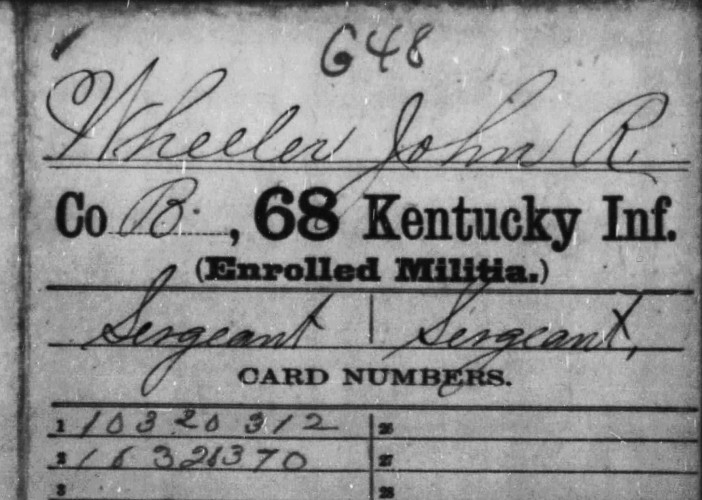 G48
Wheeler John R.
Co B., 68 Kentucky Inf.
(Enrolled Militia.)
Sergeant Sergeant,
CARD NUMBERS.
1 10320312 26
2 27
3 28